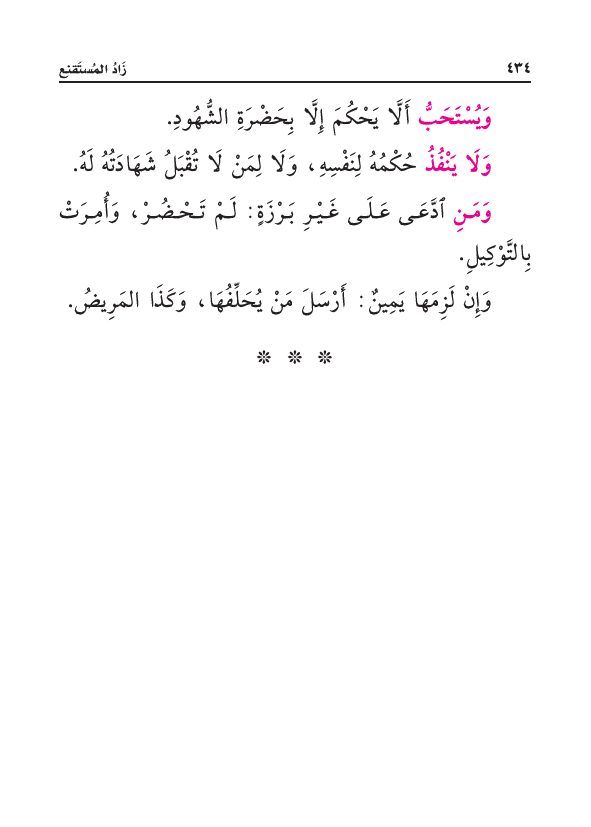 ٤٣٤ زَادُ المُستَقنِع
وَيُسْتَحَبُّ أَلَّا يَحْكُمَ إِلَّا بِحَضْرَةِ الشُّهُودِ.
وَلَا يَنْفُذُ حُكْمُهُ لِنَفْسِهِ، وَلَا لِمَنْ لَا تُقْبَلُ شَهَادَتُهُ لَهُ.
وَمَنِ ٱدَّعَى عَلَى غَيْرِ بَرْزَةٍ: لَمْ تَحْضُرْ، وَأُمِرَتْ
بِالتَّوْكِيلِ.
وَإِنْ لَزِمَهَا يَمِينٌ: أَرْسَلَ مَنْ يُحَلِّفُهَا، وَكَذَا المَرِيضُ.